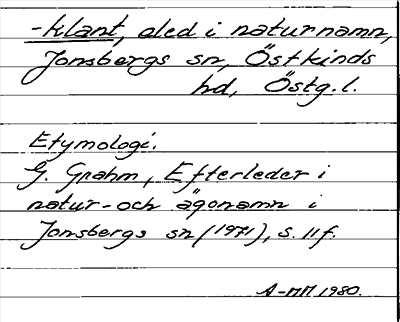 -klant, oled i naturnamn,
Jonsbergs sn, Östkinds
hd, Östg.l.
Etymologi.
G. Grahm, Efterleder i
natur- och ägonamn i
Jonsbergs sn (1971), s. 11 f.
A-MM 1980.